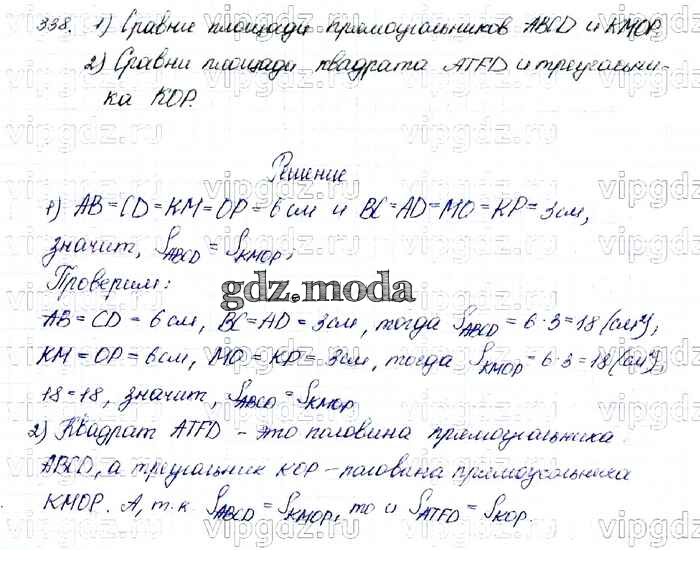 338. 1) Сравни площади прямоугольников ABCD и KMOP.
2) Сравни площади квадрата ATFD и треугольни-
ка KOP.
Решение
1) AB=CD=KM=OP=6 см и BC=AD=MO=KP=3см,
значит, S_ABCD = S_KMOP,
Проверим:
gdz.moda
AB=CD=6см, BC=AD=3см, тогда S_ABCD=6·3=18(см²),
KM=OP=6см, MO=KP=3см, тогда S_KMOP=6·3=18(см²),
18=18, значит, S_ABCD=S_KMOP
2) Квадрат ATFD - это половина прямоугольника
ABCD, а треугольник KOP - половина прямоугольника
KMOP. А, т.к. S_ABCD=S_KMOP, то и S_ATFD=S_KOP.
vipgdz.ru